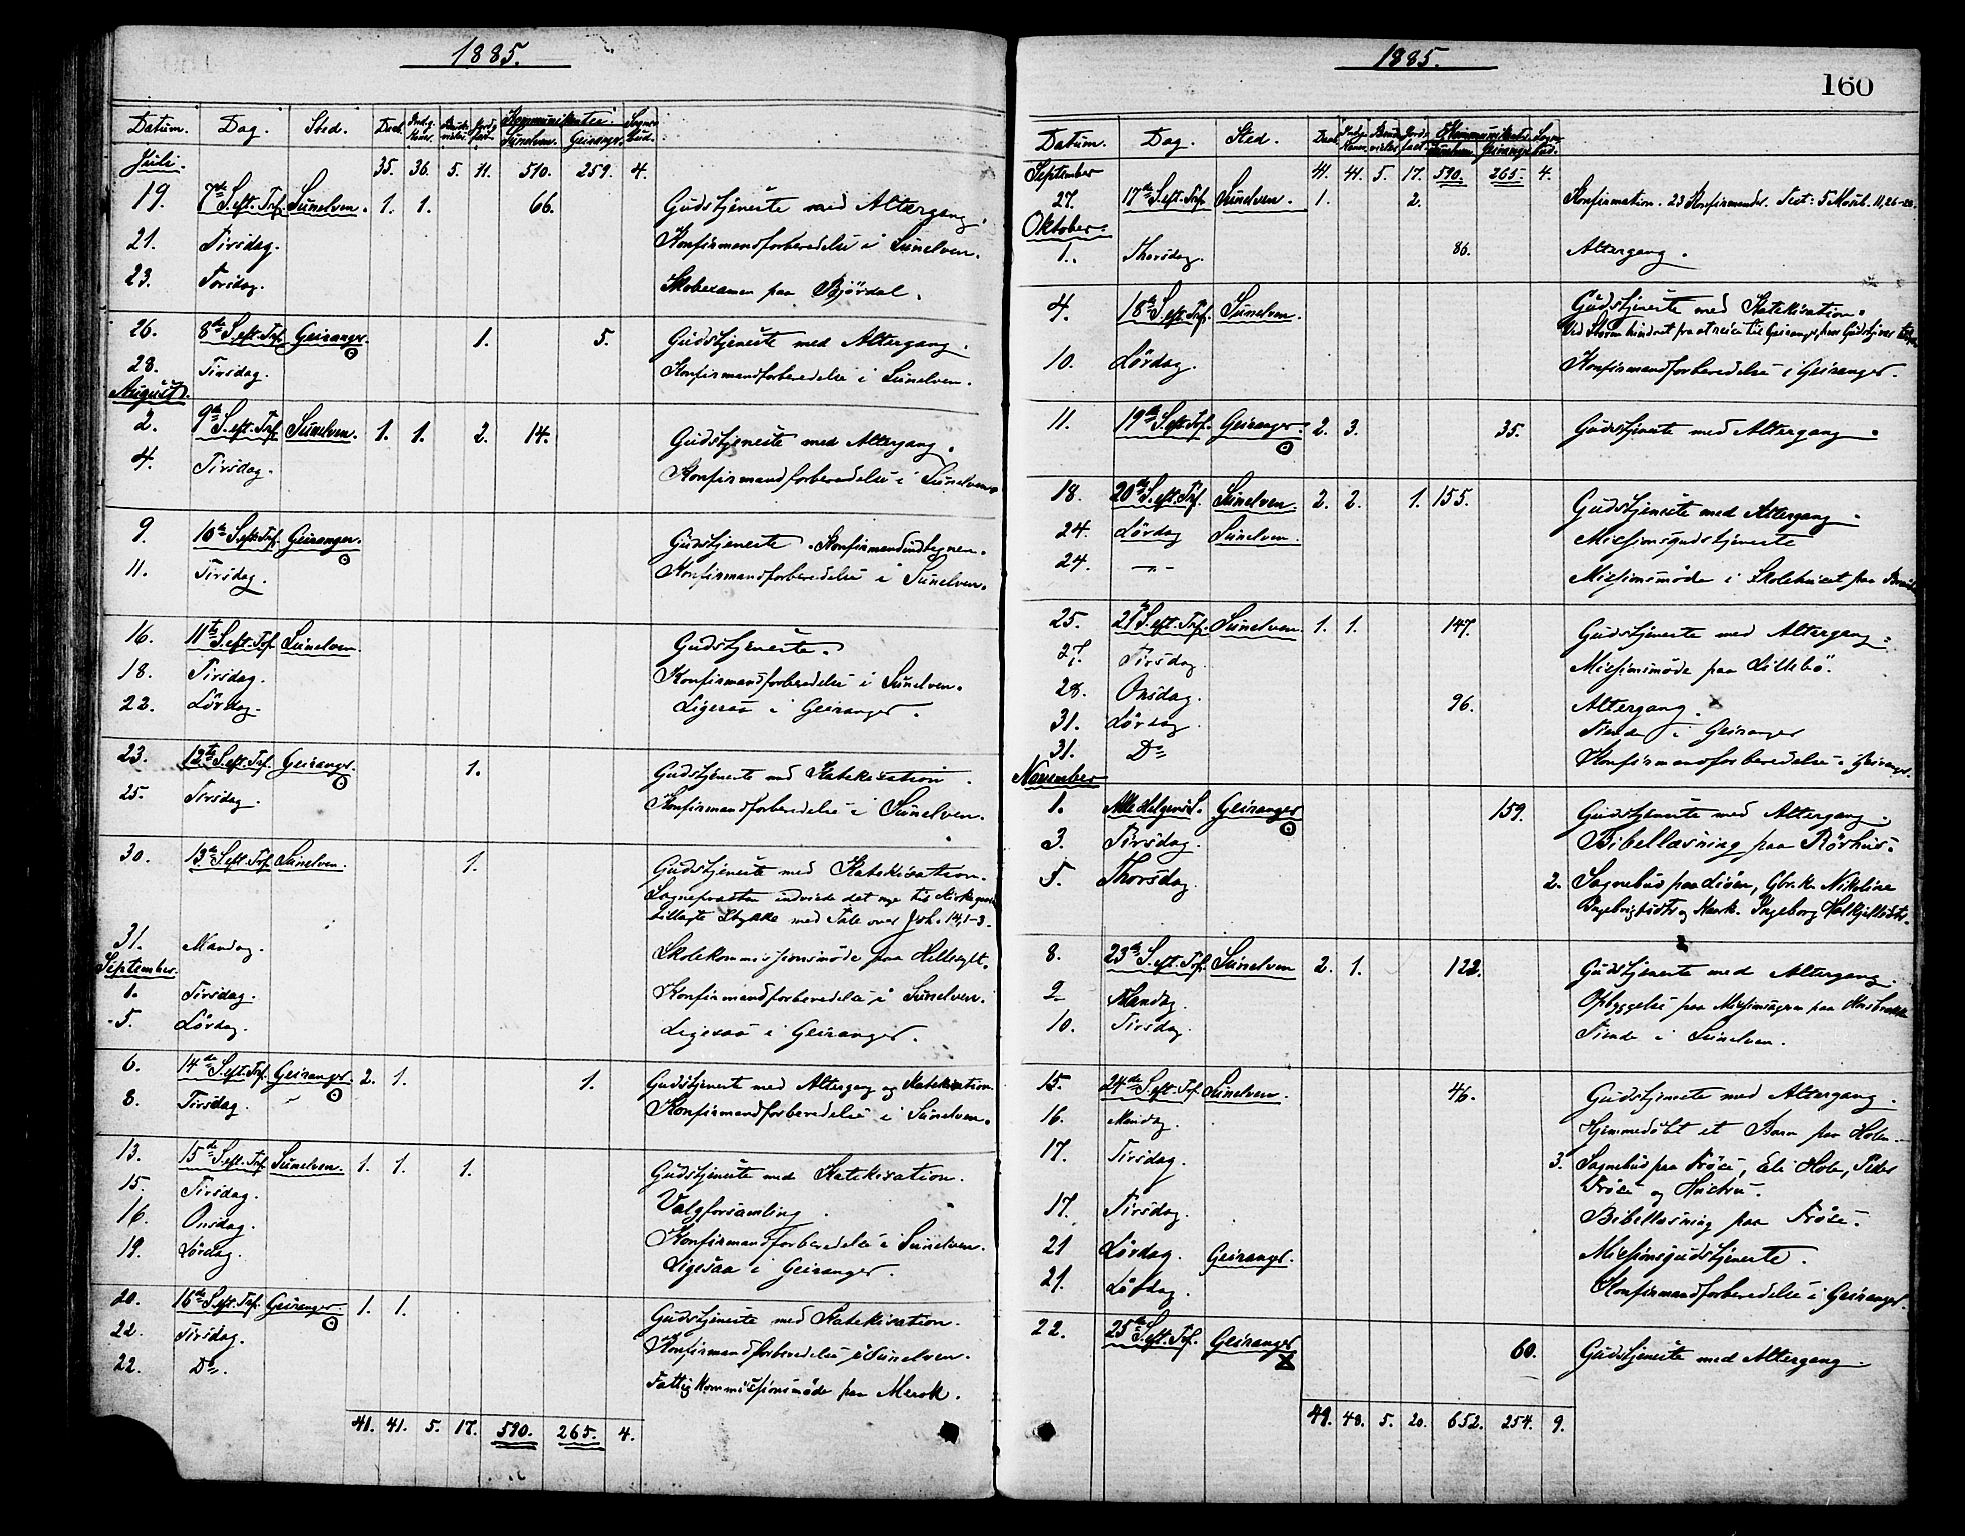 1885.
Datum. Dag. Sted. Kommunikanter.
Sunelven. Geiranger.
Juli. 35. 36. 5. 11. 510. 259. 4.
19. 7de S. eft. Trf. Sunelven. 1. 1. 66. Gudstjeneste med Altergang.
21. Tirsdag. Konfirmandforberedelse i Sunelven.
23. Torsdag. Skoleexamen paa Björdal.
26. 8de S. eft. Trf. Geiranger. 1. 5. Gudstjeneste med Altergang.
28. Tirsdag. Konfirmandforberedelse i Sunelven.
August.
2. 9de S. eft. Trf. Sunelven. 1. 1. 2. 14. Gudstjeneste med Altergang.
4. Tirsdag. Konfirmandforberedelse i Sunelven.
9. 10de S. eft. Trf. Geiranger. Gudstjeneste.
11. Tirsdag. Konfirmandforberedelse i Sunelven.
16. 11te S. eft. Trf. Sunelven. Gudstjeneste.
18. Tirsdag. Konfirmandforberedelse i Sunelven.
22. Lördag. Ligesaa i Geiranger.
23. 12te S. eft. Trf. Geiranger. 1. Gudstjeneste med Katekisation.
25. Tirsdag. Konfirmandforberedelse i Sunelven.
30. 13de S. eft. Trf. Sunelven. 1. Gudstjeneste med Katekisation.
Sognepræsten indviede det nye til Kirkegaarden
tillagte Stykke med Tale over Joh. 14, 1-3.
31. Mandag. Skolekommissionsmöde paa Hellesylt.
September.
1. Tirsdag. Konfirmandforberedelse i Sunelven.
5. Lördag. Ligesaa i Geiranger.
6. 14de S. eft. Trf. Geiranger. 2. 1. 1. Gudstjeneste med Altergang og Katekisation.
8. Tirsdag. Konfirmandforberedelse i Sunelven.
13. 15de S. eft. Trf. Sunelven. 1. 1. 1. Gudstjeneste med Katekisation.
15. Tirsdag. Valgforsamling.
16. Onsdag. Konfirmandforberedelse i Sunelven.
19. Lördag. Ligesaa i Geiranger.
20. 16de S. eft. Trf. Geiranger. 1. 1. Gudstjeneste med Katekisation.
22. Tirsdag. Konfirmandforberedelse i Sunelven.
22. Do. Fattigkommissionsmöde paa Merok.
41. 41. 5. 17. 590. 265. 4.
1885.
160
Datum. Dag. Sted. Kommunikanter
Sunelven. Geiranger.
September 41. 41. 5. 17. 590. 265. 4.
27. 17de S. eft. Trf. Sunelven. 1. 2. Konfirmation. 23 Konfirmander. Text: 5 Moseb. 11, 26-28.
Oktober.
1. Thorsdag. 86. Altergang.
4. 18de S. eft. Trf. Sunelven. Gudstjeneste med Katekisation.
Ved Storm hindret fra at reise til Geiranger, hvor Gudstjeneste
10. Lördag. Konfirmandforberedelse i Geiranger.
11. 19de S. eft. Trf. Geiranger. 2. 3. 35. Gudstjeneste med Altergang.
18. 20de S. eft. Trf. Sunelven. 2. 2. 1. 155. Gudstjeneste med Altergang.
24. Lördag Sunelven. Missionsgudstjeneste
24. -"- Missionsmöde i Skolehuset paa
25. 21de S. eft. Trf. Sunelven. 1. 1. 147. Gudstjeneste med Altergang.
27. Tirsdag. Missionsmöde paa Lillebö.
28. Onsdag. 96. Altergang.
31. Lördag. Tiende i Geiranger
31. Do Konfirmandforberedelse i Geiranger.
November
1. Alle Helgens S. Geiranger 159. Gudstjeneste med Altergang.
3. Tirsdag. Bibellæsning paa Rörhus.
5. Thorsdag. 2. Sognebud paa Nikoline
Ingeborg
8. 23de S. eft. Trf. Sunelven 2. 1. 122. Gudstjeneste med Altergang.
9. Mandag. Opbyggelse paa
10. Tirsdag. Tiende i Sunelven.
15. 24de S. eft. Trf. Sunelven. 46. Gudstjeneste med Altergang.
16. Mandag. Hjemmedöbt et Barn paa Hole.
17. Tirsdag. 3. Sognebud paa Tröen, Eli Hole, Peder
Tröen og Hustru.
17. Tirsdag. Bibellæsning paa Tröen.
21 Lördag. Geiranger. Missionsgudstjeneste.
21. Lördag. Konfirmandforberedelse i Geiranger.
22. 25de S. eft. Trf. Geiranger 60. Gudstjeneste med Altergang.
49. 48. 5. 20. 652. 254. 9.